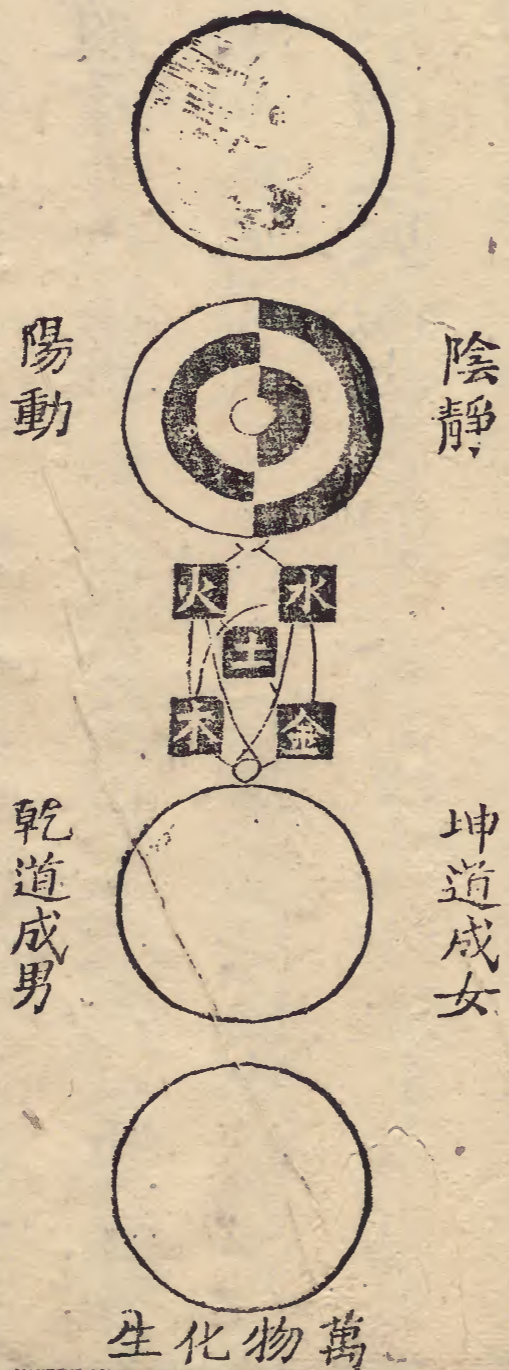 陰靜
陽動
水
火
土
金
木
坤道成女
乾道成男
萬物化生